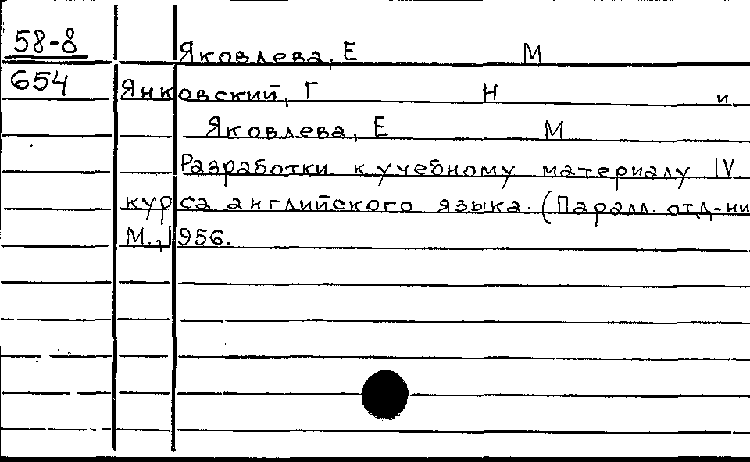 58-8 Яковлева, Е М
654 Янковский, Г Н и
Яковлева, Е М
Разработки к учебному материалу IV
курса английского языка. (Паралл. отд-ни
М., 1956.